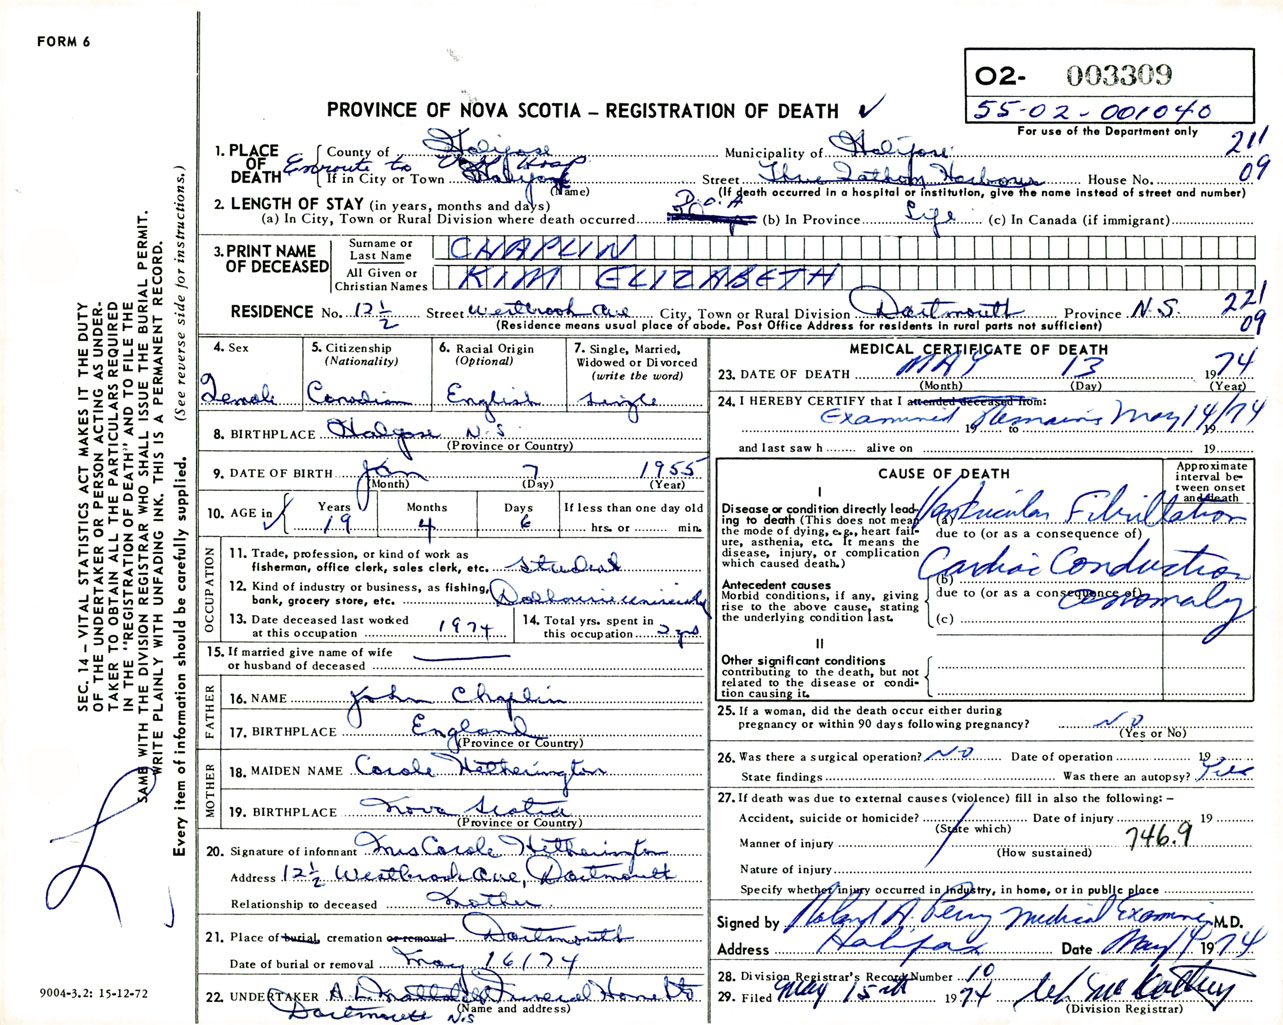 FORM 6
02- 003309
55-02-001040
For use of the Department only
PROVINCE OF NOVA SCOTIA – REGISTRATION OF DEATH ✓
211
09
1. PLACE OF DEATH
County of Halifax Municipality of Halifax
Enroute to Hosp
If in City or Town Halifax Street Three Fathom Harbour House No.
(Name) (If death occurred in a hospital or institution, give the name instead of street and number)
2. LENGTH OF STAY (in years, months and days) D.O.A
(a) In City, Town or Rural Division where death occurred (b) In Province Life (c) In Canada (if immigrant)
3. PRINT NAME OF DECEASED
Surname or Last Name CHAPLIN
All Given or Christian Names KIM ELIZABETH
RESIDENCE No. 12½ Street Westbrook Ave City, Town or Rural Division Dartmouth Province N.S.
221
09
(Residence means usual place of abode. Post Office Address for residents in rural parts not sufficient)
4. Sex
Female
5. Citizenship
(Nationality)
Canadian
6. Racial Origin
(Optional)
English
7. Single, Married,
Widowed or Divorced
(write the word)
Single
8. BIRTHPLACE Halifax N.S.
(Province or Country)
9. DATE OF BIRTH Jan 7 1955
(Month) (Day) (Year)
10. AGE in
Years Months Days If less than one day old
19 4 6 hrs. or min.
OCCUPATION
11. Trade, profession, or kind of work as
fisherman, office clerk, sales clerk, etc. Student
12. Kind of industry or business, as fishing,
bank, grocery store, etc. Dalhousie University
13. Date deceased last worked
at this occupation 1974
14. Total yrs. spent in
this occupation 2 yrs
15. If married give name of wife
or husband of deceased
FATHER
16. NAME John Chaplin
17. BIRTHPLACE England
(Province or Country)
MOTHER
18. MAIDEN NAME Carole Hetherington
19. BIRTHPLACE Nova Scotia
(Province or Country)
20. Signature of informant Mrs Carole Hetherington
Address 12½ Westbrook Ave, Dartmouth
Relationship to deceased Mother
21. Place of burial, cremation or removal Dartmouth
Date of burial or removal May 16/74
22. UNDERTAKER Funeral Home Ltd
(Name and address)
Dartmouth N.S
MEDICAL CERTIFICATE OF DEATH
23. DATE OF DEATH MAY 13 1974
(Month) (Day) (Year)
24. I HEREBY CERTIFY that I attended deceased from:
Examined Remains May 14/74
19 to 19
and last saw h alive on 19
CAUSE OF DEATH
Approximate
interval be-
tween onset
and death
I
Disease or condition directly lead-
ing to death (This does not mean
the mode of dying, e.g., heart fail-
ure, asthenia, etc. It means the
disease, injury, or complication
which caused death.)
(a) Ventricular Fibrillation
due to (or as a consequence of)
Antecedent causes
Morbid conditions, if any, giving
rise to the above cause, stating
the underlying condition last.
(b) Cardiac Conduction
due to (or as a consequence of) anomaly
(c)
II
Other significant conditions
contributing to the death, but not
related to the disease or condi-
tion causing it.
25. If a woman, did the death occur either during
pregnancy or within 90 days following pregnancy? NO
(Yes or No)
26. Was there a surgical operation? NO Date of operation 19
State findings Was there an autopsy? Yes
27. If death was due to external causes (violence) fill in also the following: –
Accident, suicide or homicide? Date of injury 19
(State which)
Manner of injury 746.9
(How sustained)
Nature of injury
Specify whether injury occurred in industry, in home, or in public place
Signed by Roland A. Perry Medical Examiner M.D.
Address Halifax Date May 14 1974
28. Division Registrar's Record Number 10
29. Filed May 15th 1974
(Division Registrar)
SEC. 14 – VITAL STATISTICS ACT MAKES IT THE DUTY
OF THE UNDERTAKER OR PERSON ACTING AS UNDER-
TAKER TO OBTAIN ALL THE PARTICULARS REQUIRED
IN THE "REGISTRATION OF DEATH" AND TO FILE THE
SAME WITH THE DIVISION REGISTRAR WHO SHALL ISSUE THE BURIAL PERMIT.
WRITE PLAINLY WITH UNFADING INK. THIS IS A PERMANENT RECORD.
Every item of information should be carefully supplied. (See reverse side for instructions.)
9004-3.2: 15-12-72